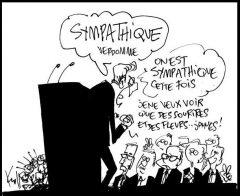 SYMPATHIQUE
VERDOMME
ON EST
SYMPATHIQUE
CETTE FOIS
JE NE VEUX VOIR
QUE DES SOURIRES
ET DES FLEURS...